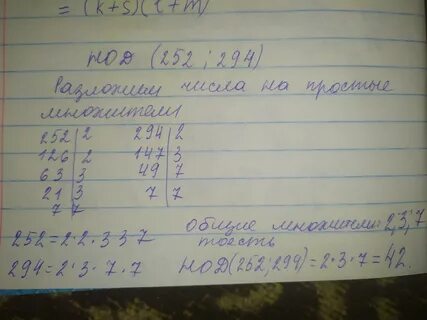 = (k+s)(t+m)
НОД (252 ; 294)
Разложим числа на простые
множители
252 | 2 294 | 2
126 | 2 147 | 3
63 | 3 49 | 7
21 | 3 7 | 7
7 | 7
252 = 2·2·3 3 7
294 = 2·3·7·7
общие множители: 2,3,7
тоесть
НОД(252;294) = 2·3·7 = 42.